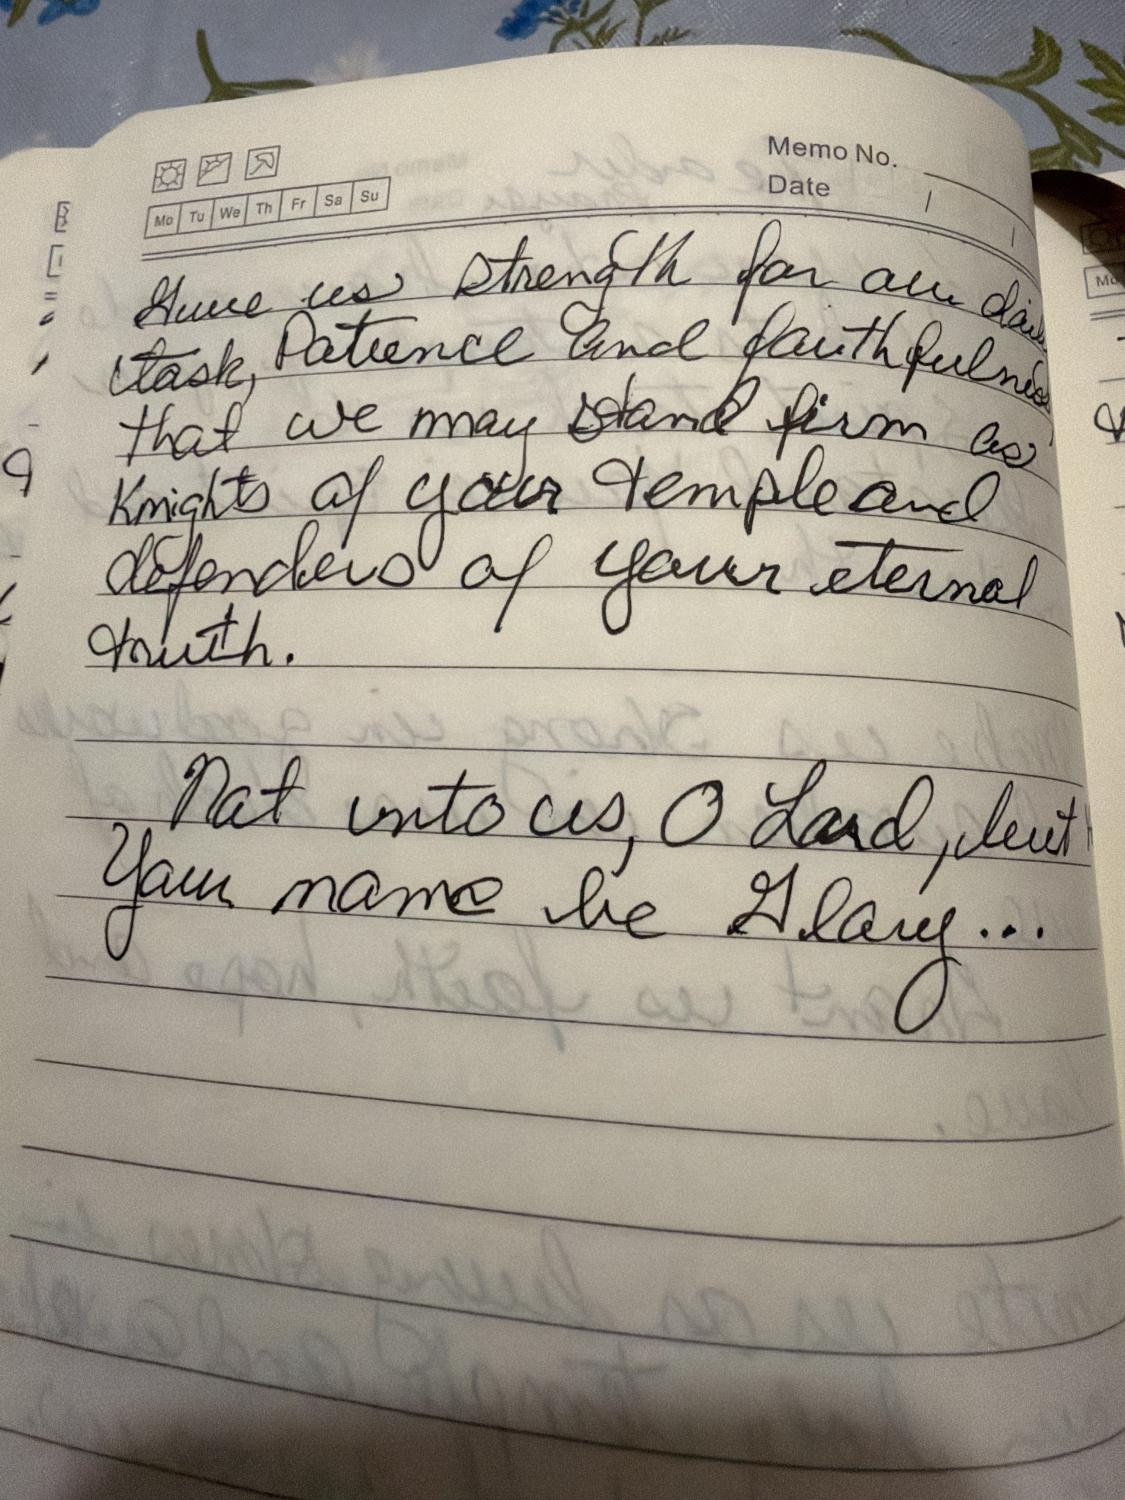 Memo No.
Date
Mo Tu We Th Fr Sa Su
Give us strength for our
task, Patience and faithfulness
that we may stand firm as
Knights of your temple and
defenders of your eternal
truth.
Not unto us, O Lord, but
Your name be Glory...